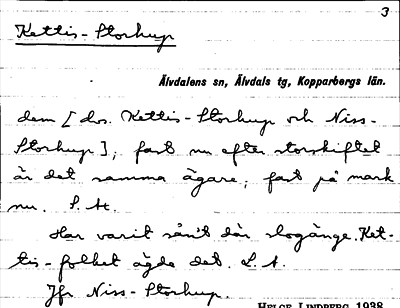 3
Kettis-Storhup
Älvdalens sn, Älvdals tg, Kopparbergs län.
dem [dvs. Kettis-Storhup och Niss-
Storhup], fast nu efter storskiftet
är det samma ägare, fast på mark
nu. S. H.
Har varit sån't där slogänge. Ket-
tis-folket ägde det. L. A.
Jfr Niss-Storhup.
HELGE LINDBERG 1938